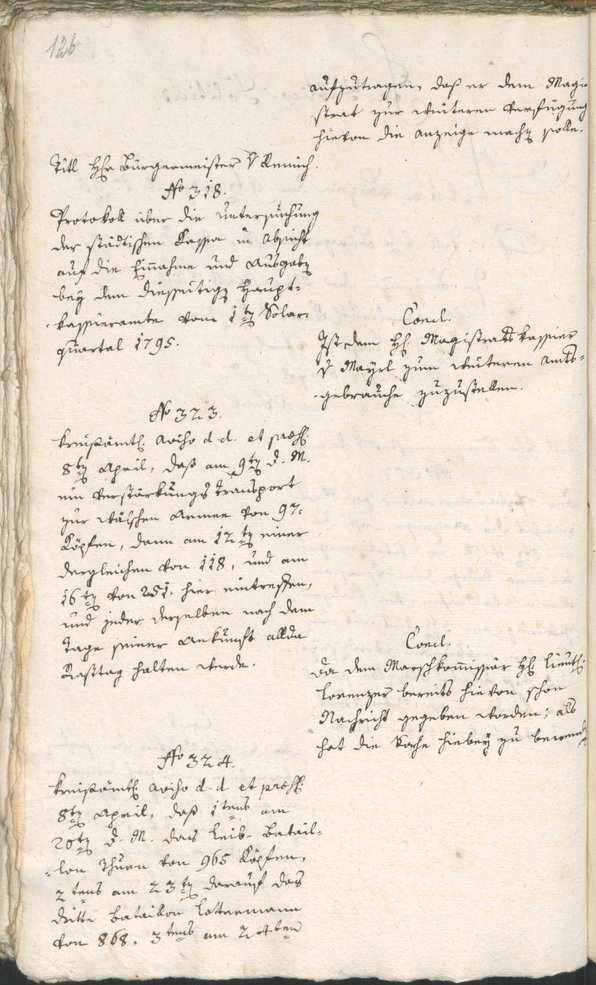 126
aufzutragen, daß er dem Magi-
strat zur weiteren Verfügung
hievon die Anzeige mache solle.
Titl Hr Bürgermeister v Remich.
No 318.
Protokoll über die Untersuchung
der städtischen Kassa in Absicht
auf die Einnahme und Ausgabe
bey dem diesseitige Haupt-
kassieramte vom 1te Solar-
quartal 1795.
Concl.
Ist dem H. Magistratskassier
v Mayrl zum weiteren Amts-
gebrauche zuzustellen.
No 323.
Kreisämtl. Aviso d. d. et praes.
8te April, daß am 9te d. M.
ein Verstärkungs Transport
zur wälschen Armee von 97.
Köpfen, dann am 12te einer
dergleichen von 118, und am
16te von 251. hier eintreffen,
und jeder derselben nach dem
Tage seiner Ankunft allda
Rasttag halten werde.
Concl.
Da dem Marschkommissär H. Lieut.
Lorenzer bereits hievon schon
Nachricht gegeben worden; als
hat die Sache hiebey zu bewend
No 324.
Kreisämtl. Aviso d. d. et praes.
8te April, daß 1tens am
20te d. M. das Leib-Batail-
lon Thurn von 965 Köpfen,
2tens am 23te darauf das
dritte Bataillon Lattermann
von 868. 3tens am 24ten